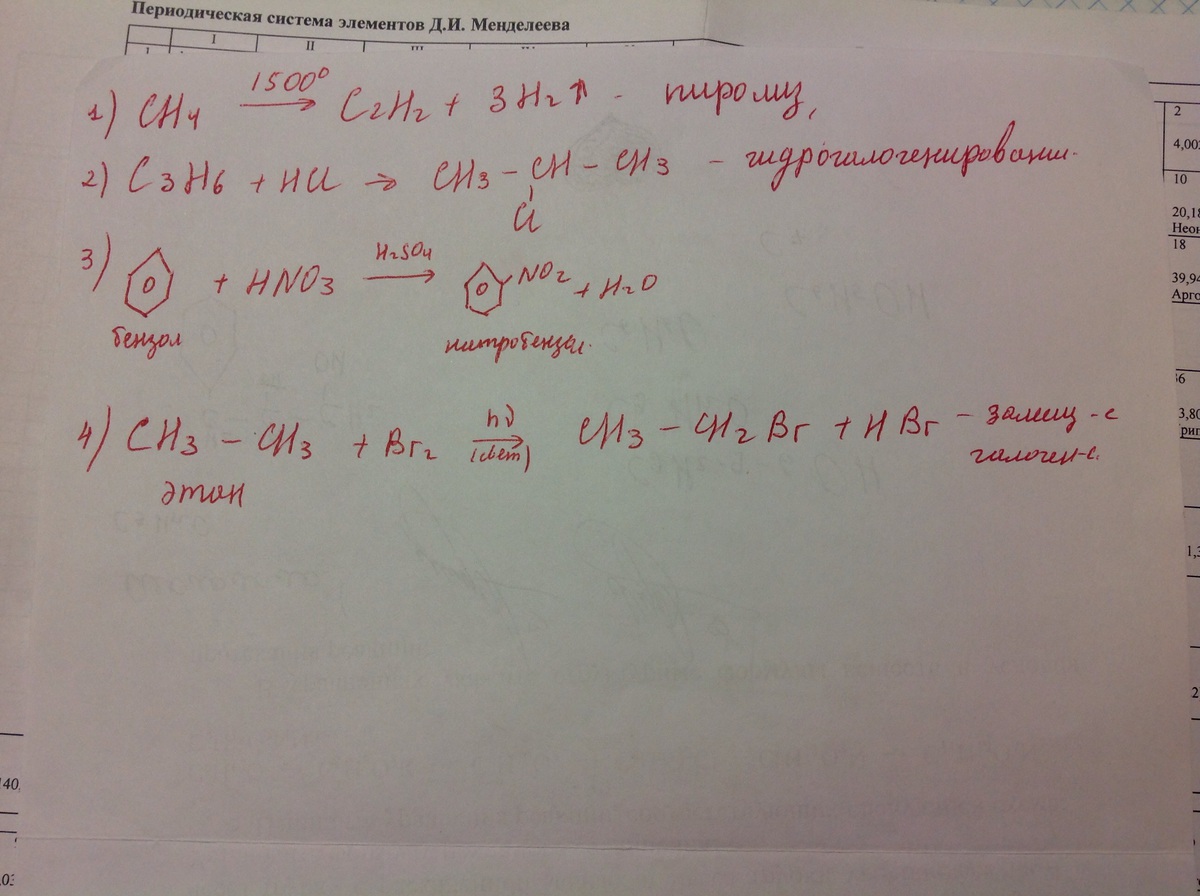 Периодическая система элементов Д.И. Менделеева
I II III
1) CH4 1500° → C2H2 + 3H2↑ - пиролиз,
2) C3H6 + HCl → CH3 – CH – CH3 – гидрогалогенировани.
Cl
3) + HNO3 H2SO4 → NO2 + H2O
бензол нитробензол.
4) CH3 – CH3 + Br2 hν → (свет) CH3 – CH2Br + HBr – замещ-е
галоген-е.
этан
2
4,00
10
20,18
Неон
18
39,94
Арго
36
3,80
рип
1,3
2
140,